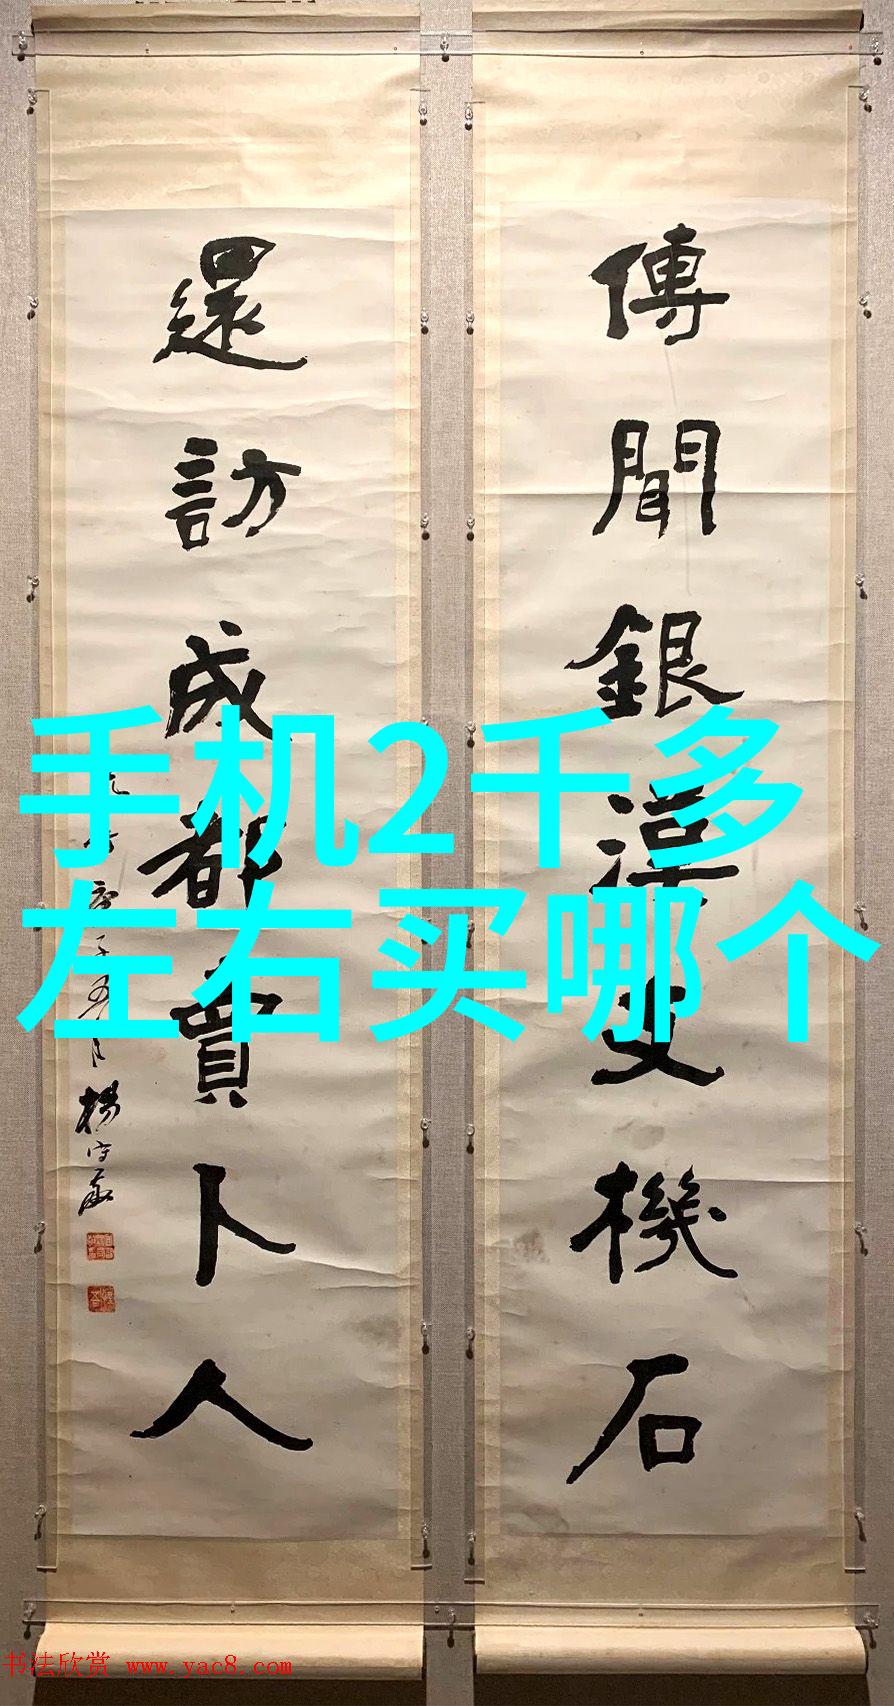 傳聞銀漢支機石
還訪成都賣卜人
子五月楊守敬
手机2千多
左右买哪个
书法欣赏 www.yac8.com